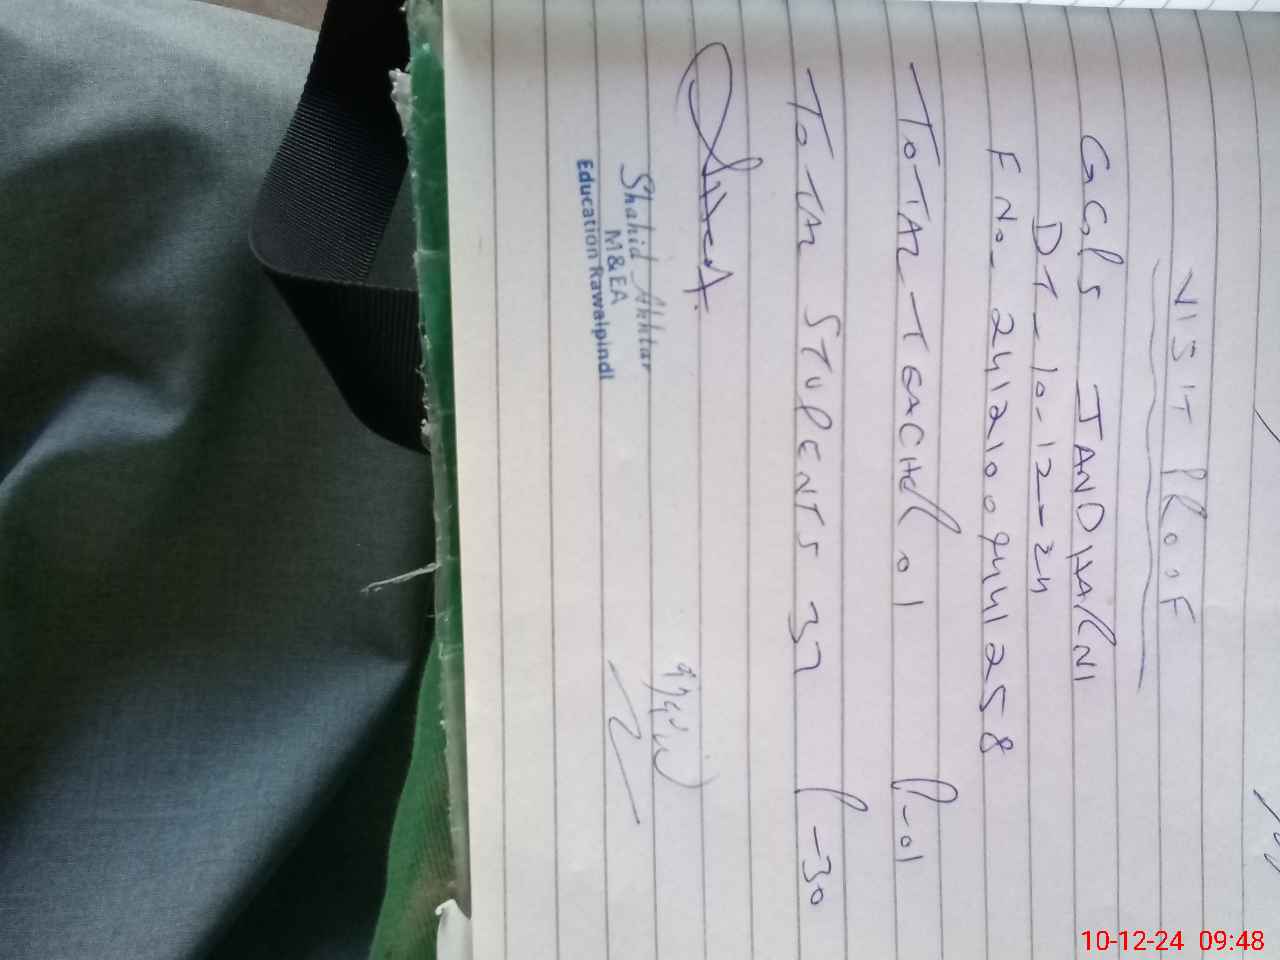 VISIT PROOF
GGPS JANDHARNI
DT - 10-12-24
F No- 241210094441258
TOTAL TEACHER 01 P-01
TOTAL STUDENTS 37 P-30
Shahid Akhtar
M & EA
Education Rawalpindi
10-12-24 09:48